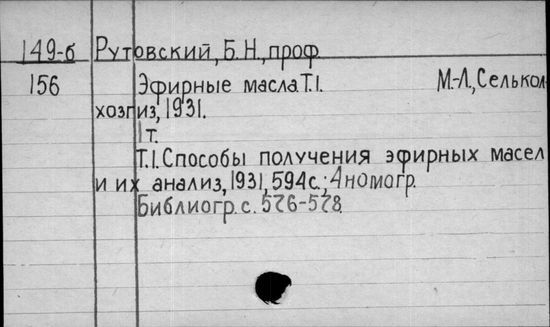 149-б Рутовский, Б.Н., проф
156 Эфирные масла. Т.I. М.-Л., Селькол
хозгиз, 1931.
1 т.
Т.I. Способы получения эфирных масел
и их анализ, 1931, 594с.; 4номогр.
Библиогр. с. 576-578.